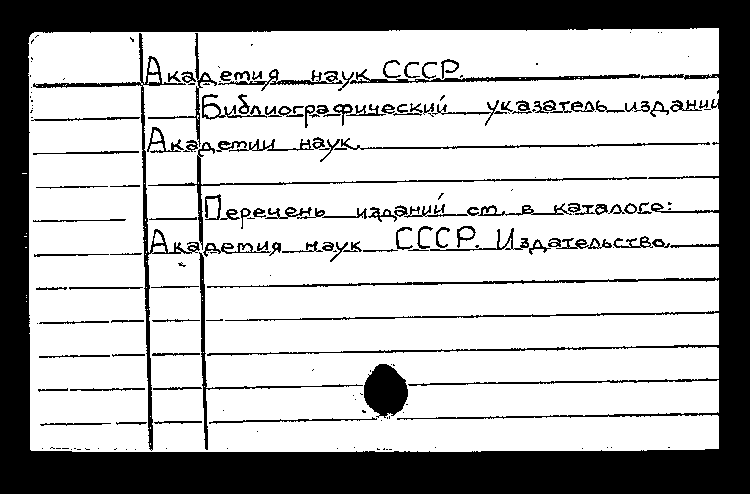 Академия наук СССР.
Библиографический указатель изданий
Академии наук.
Перечень изданий см. в каталоге:
Академия наук СССР. Издательство.